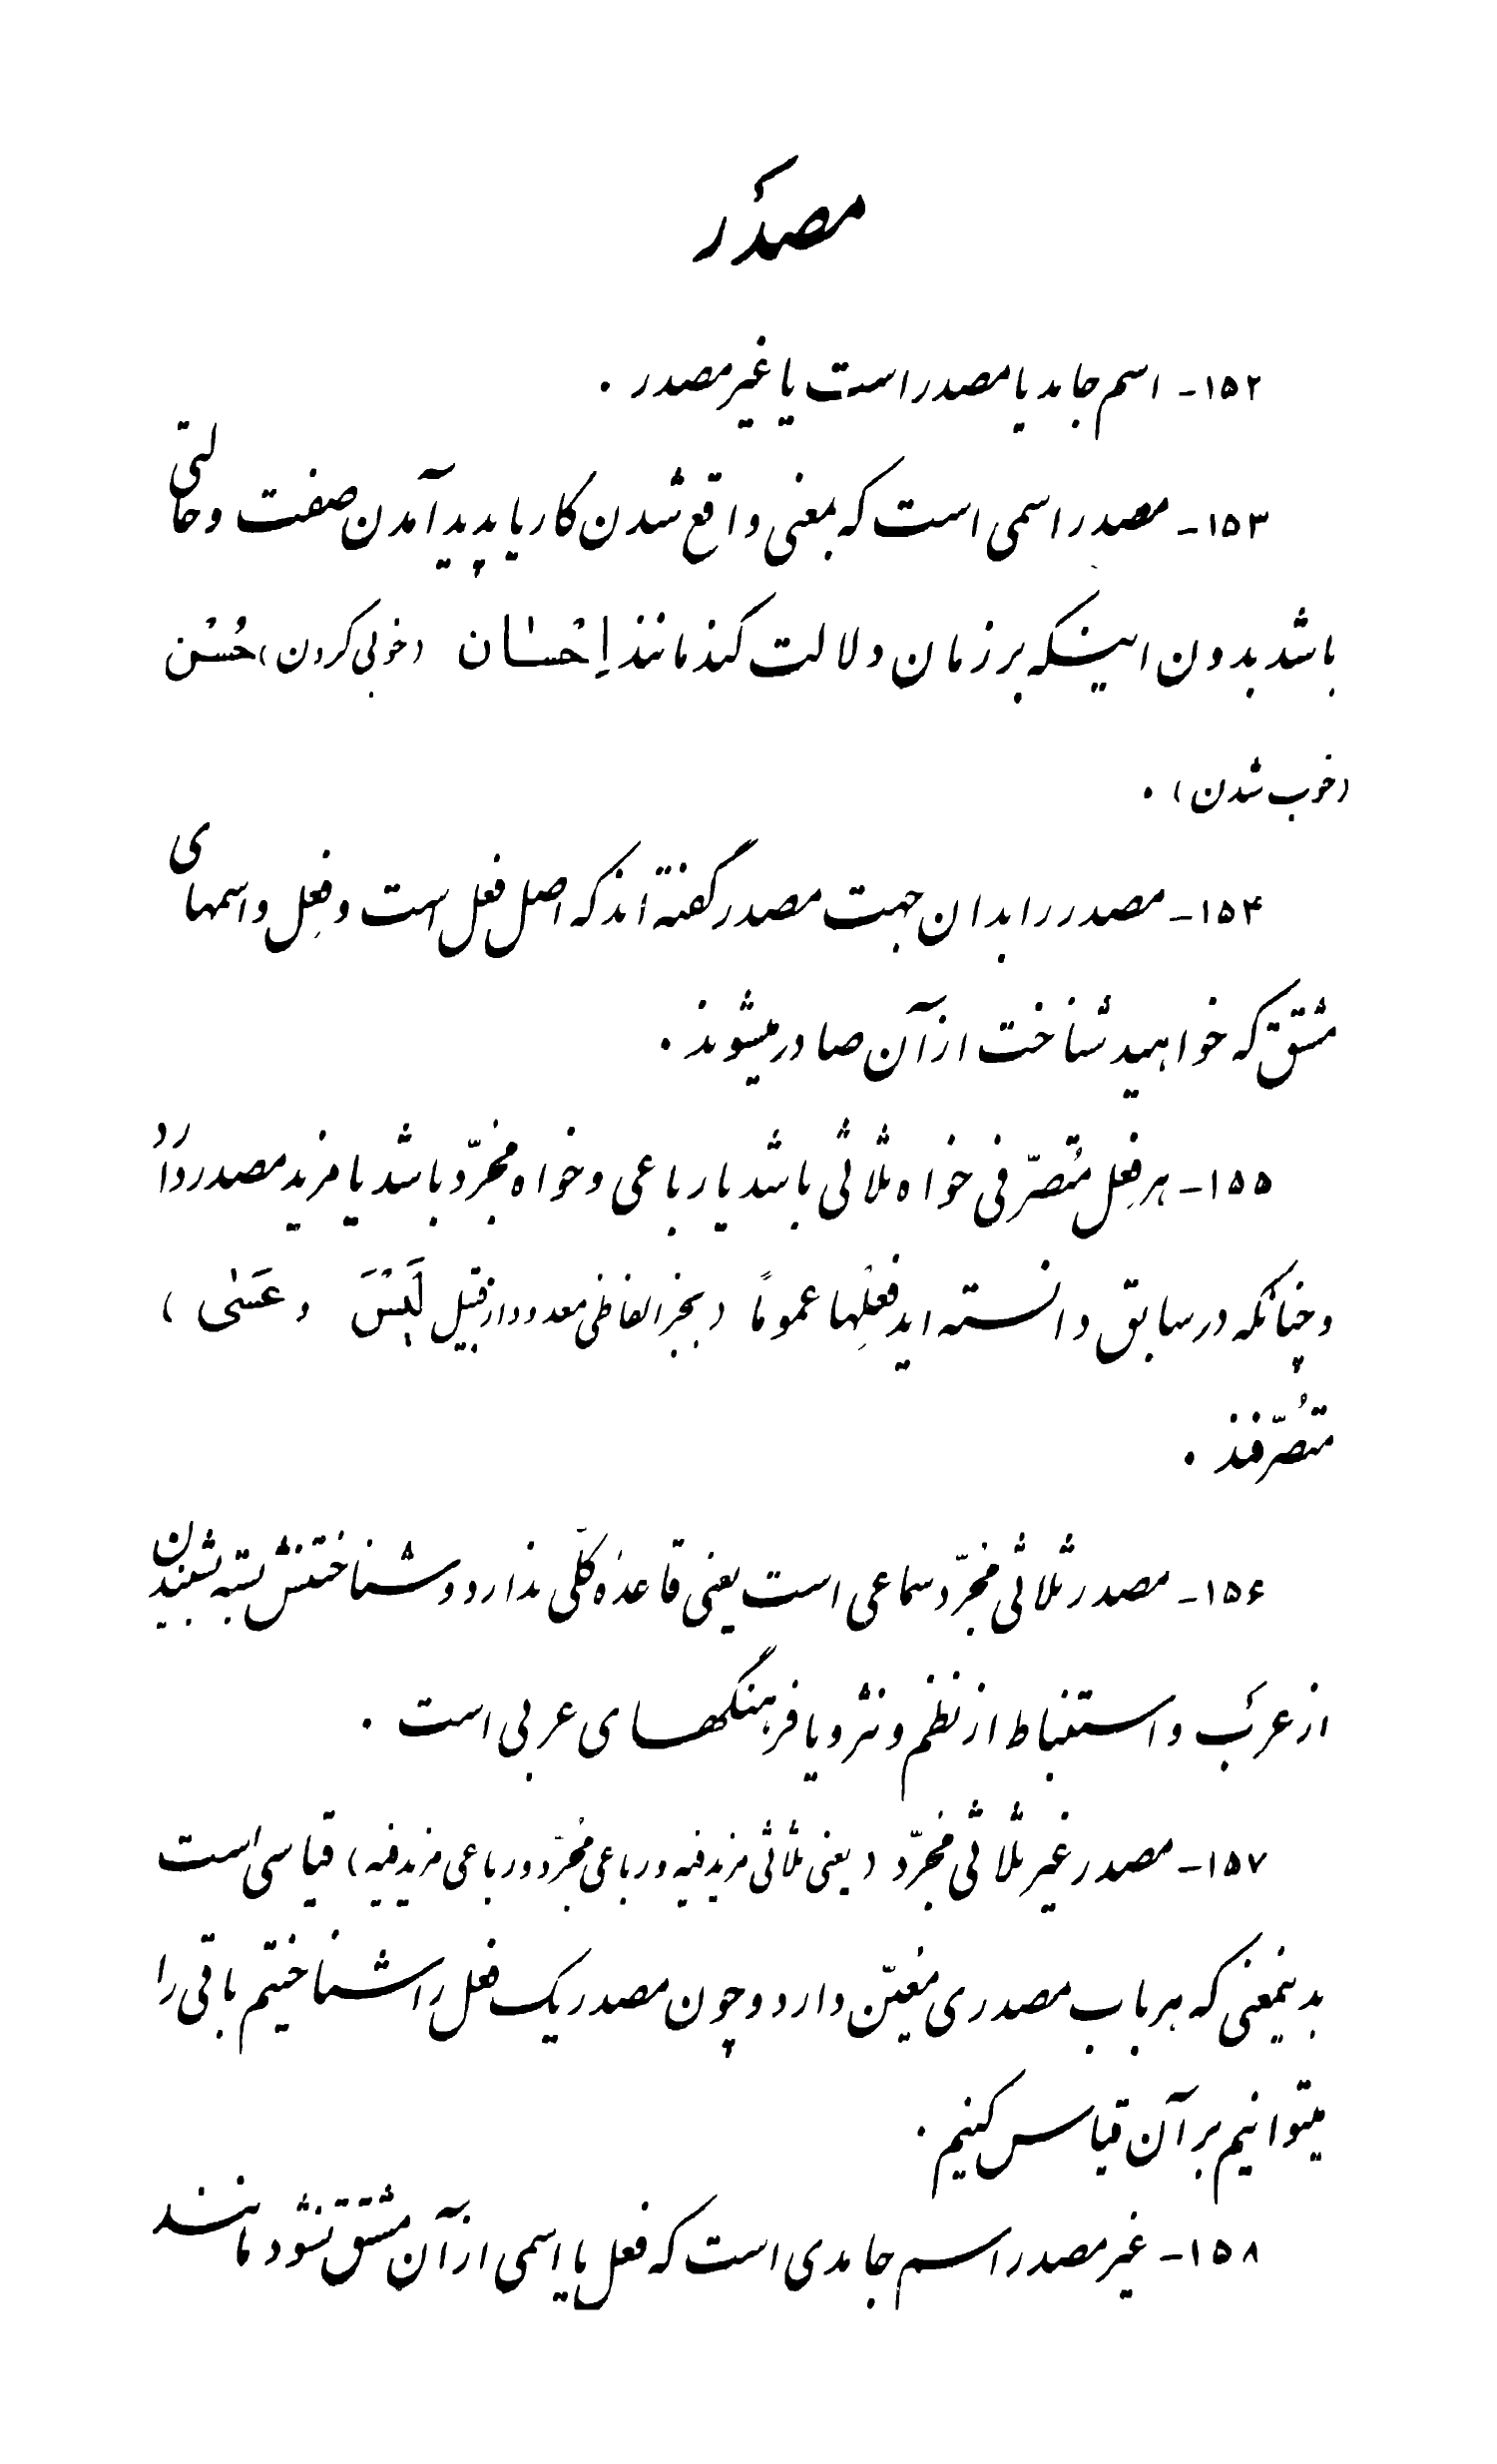 مصدر
۱۵۲- اسم جامد یا مصدر است یا غیر مصدر .
۱۵۳- مصدر اسمی است که بمعنی واقع شدن کار یا پدید آمدن صفت و حالتی
باشد بدون اینکه بر زمان دلالت کند مانند اِحْسٰان (خوبی کردن) حُسْن
(خوب شدن) .
۱۵۴- مصدر را بدان جهت مصدر گفته‌اند که اصل فعل است و فِعل و اسمهای
مشتق که خواهید شناخت از آن صادر میشوند .
۱۵۵- هر فِعل مُتصرّفی خواه ثلاثی باشد یا رباعی و خواه مجرّد باشد یا مزید مصدر دارد
و چنانکه در سابق دانسته‌اید فِعْلها عموماً (بجز الفاظی معدود از قبیل لَیْسَ و عَسٰی )
متُصرّفند .
۱۵۶- مصدر ثلاثی مجرّد سماعی است یعنی قاعدهٔ کلّی ندارد و شناختنش بسته بشنیدن
از عرَب و استنباط از نظم و نثر و یا فرهنگهای عربی است .
۱۵۷- مصدر غیر ثلاثی مجرّد (یعنی ثلاثی مزید فیه و رباعی مجرّد و رباعی مزید فیه) قیاسی است
بدینمعنی که هر باب مصدری معیّن دارد و چون مصدر یک فعل را شناختیم باقی را
میتوانیم بر آن قیاس کنیم .
۱۵۸- غیر مصدر اسم جامدی است که فعل یا اسمی از آن مشتق نشود مانند